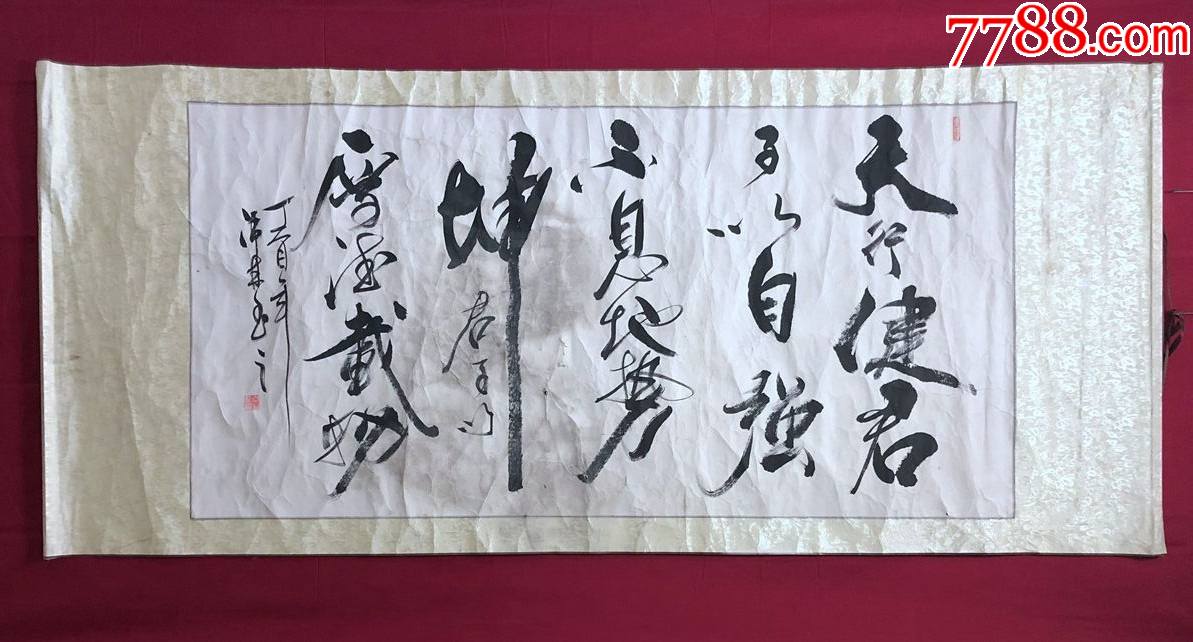 7788.com
天行健君
子以自强
不息地势
坤君子以
厚德载物
丁酉年